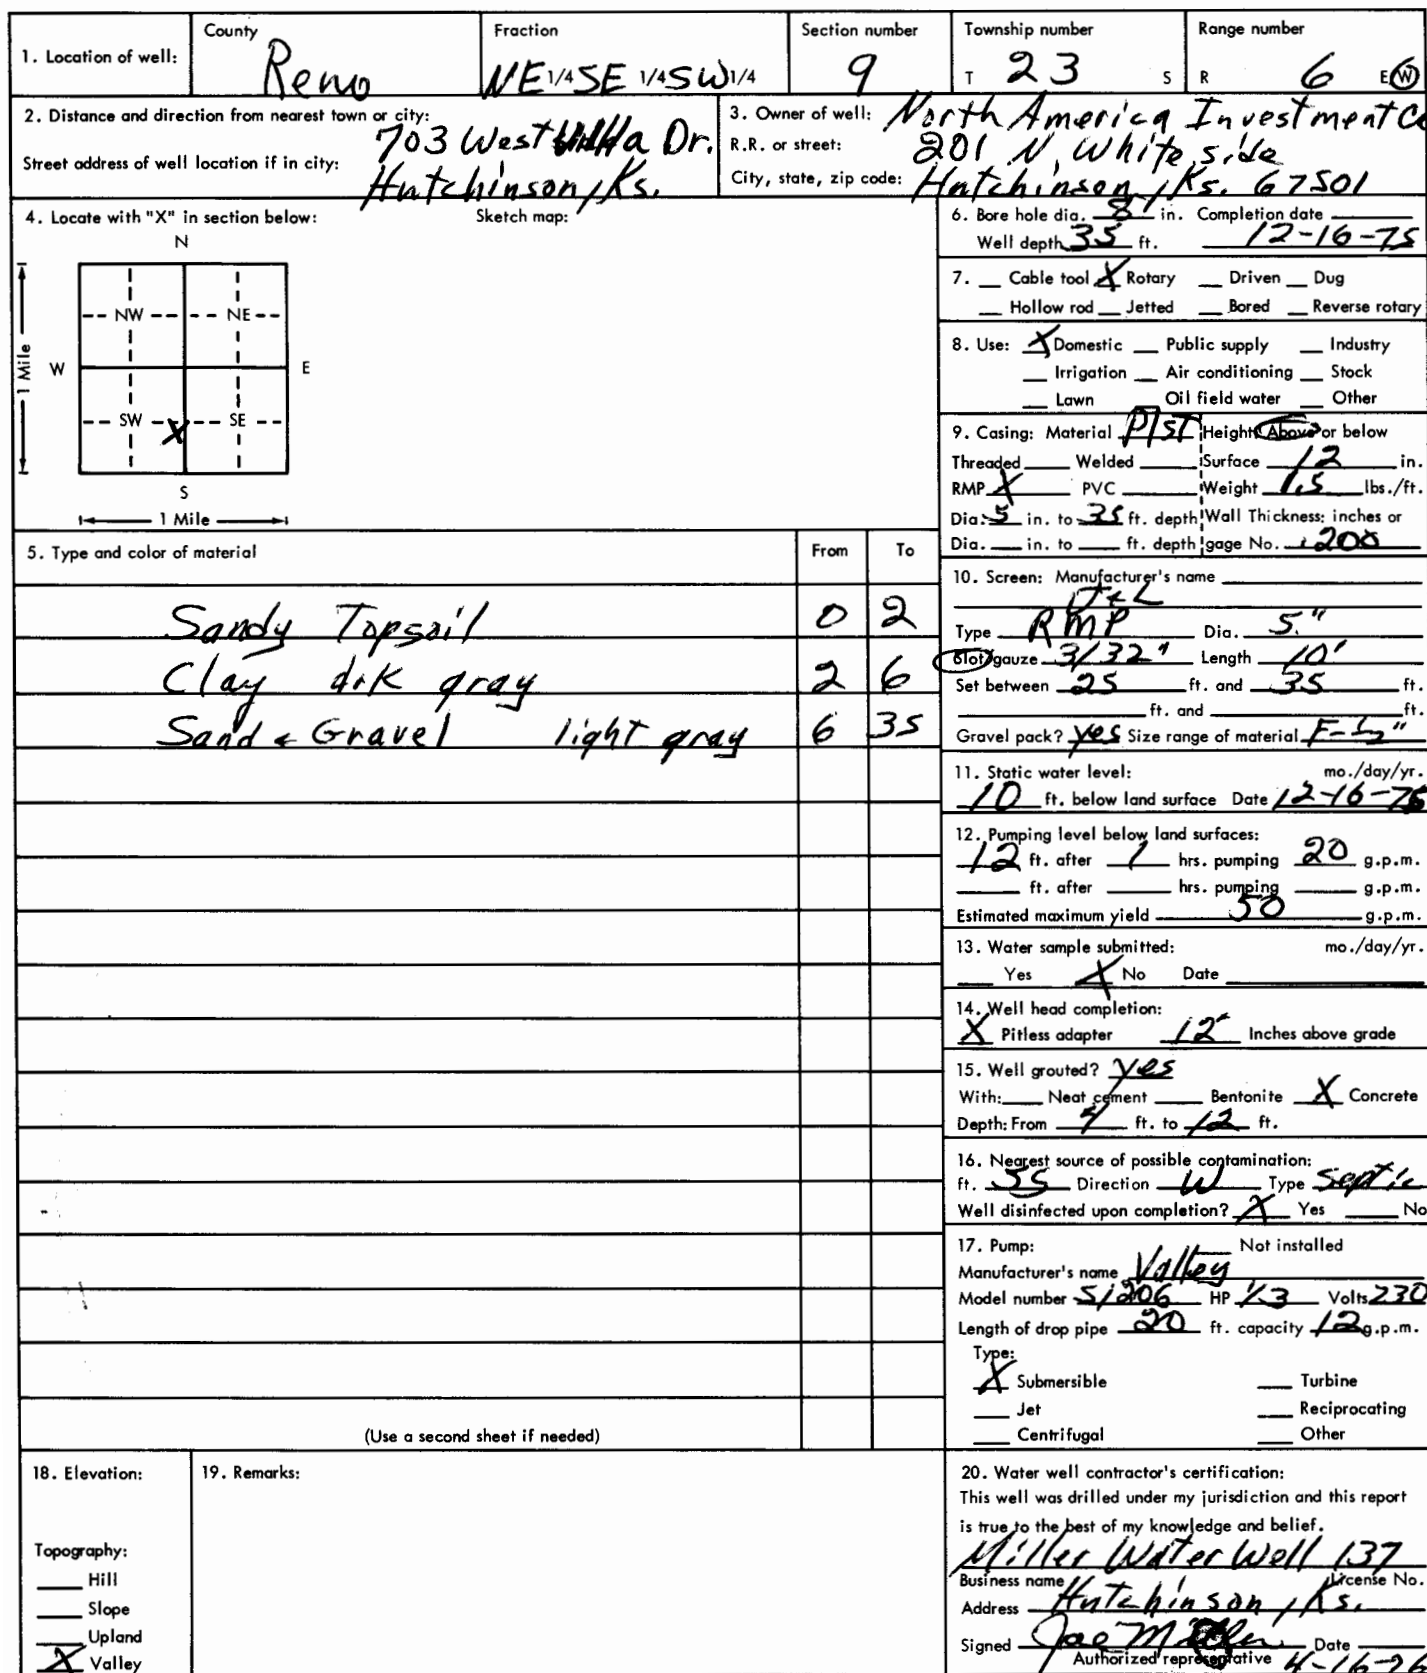 1. Location of well: County Reno Fraction NE 1/4 SE 1/4 SW 1/4 Section number 9 Township number T 23 S Range number R 6 E W
2. Distance and direction from nearest town or city: 703 West Dr.
Street address of well location if in city: Hutchinson, Ks.
3. Owner of well: North America Investment Co
R.R. or street: 201 N. Whiteside
City, state, zip code: Hutchinson, Ks. 67501
4. Locate with "X" in section below: Sketch map:
N
NW NE
W E
1 Mile
SW X SE
S
1 Mile
5. Type and color of material From To
Sandy Topsoil 0 2
Clay drk gray 2 6
Sand & Gravel light gray 6 35
(Use a second sheet if needed)
6. Bore hole dia. 8 in. Completion date
Well depth 35 ft. 12-16-75
7. Cable tool X Rotary Driven Dug
Hollow rod Jetted Bored Reverse rotary
8. Use: X Domestic Public supply Industry
Irrigation Air conditioning Stock
Lawn Oil field water Other
9. Casing: Material Plst Height: Above or below
Threaded Welded Surface 12 in.
RMP X PVC Weight 1.5 lbs./ft.
Dia. 5 in. to 35 ft. depth Wall Thickness: inches or
Dia. in. to ft. depth gage No. .200
10. Screen: Manufacturer's name
J & L
Type RMP Dia. 5"
Slot/gauze 3/32" Length 10'
Set between 25 ft. and 35 ft.
ft. and ft.
Gravel pack? yes Size range of material F-1/2"
11. Static water level: mo./day/yr.
10 ft. below land surface Date 12-16-75
12. Pumping level below land surfaces:
12 ft. after 1 hrs. pumping 20 g.p.m.
ft. after hrs. pumping g.p.m.
Estimated maximum yield 50 g.p.m.
13. Water sample submitted: mo./day/yr.
Yes X No Date
14. Well head completion:
X Pitless adapter 12" Inches above grade
15. Well grouted? yes
With: Neat cement Bentonite X Concrete
Depth: From ft. to 12 ft.
16. Nearest source of possible contamination:
ft. 55 Direction W Type Septic
Well disinfected upon completion? X Yes No
17. Pump: Not installed
Manufacturer's name Valley
Model number S1206 HP 1/3 Volts 230
Length of drop pipe 20 ft. capacity 12 g.p.m.
Type:
X Submersible Turbine
Jet Reciprocating
Centrifugal Other
18. Elevation:
Topography:
Hill
Slope
Upland
X Valley
19. Remarks:
20. Water well contractor's certification:
This well was drilled under my jurisdiction and this report
is true to the best of my knowledge and belief.
Miller Water Well 137
Business name License No.
Address Hutchinson, Ks.
Signed Joe Miller Date
Authorized representative 4-16-76